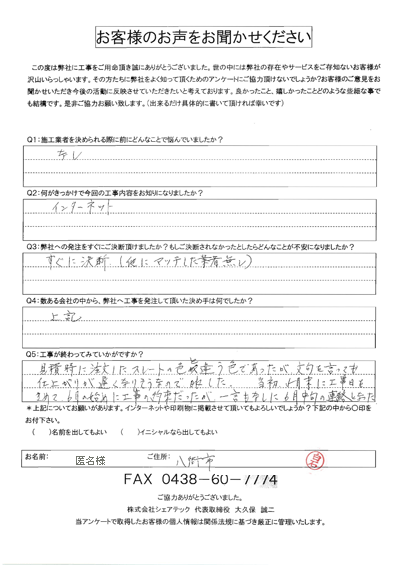 お客様のお声をお聞かせください
この度は弊社に工事をご用命頂き誠にありがとうございました。世の中には弊社の存在やサービスをご存知ないお客様が
沢山いらっしゃいます。その方たちに弊社をよく知って頂くためのアンケートにご協力頂けないでしょうか?お客様のご意見をお
聞かせいただき今後の活動に反映させていただきたいと考えております。良かったこと、嬉しかったことどのような些細な事で
も結構です。是非ご協力お願い致します。(出来るだけ具体的に書いて頂ければ幸いです)
Q1:施工業者を決められる際に前にどんなことで悩んでいましたか?
なし
Q2:何がきっかけで今回の工事内容をお知りになりましたか?
インターネット
Q3:弊社への発注をすぐにご決断頂けましたか?もしご決断されなかったとしたらどんなことが不安になりましたか?
すぐに決断(他にマッチした業者無し)
Q4:数ある会社の中から、弊社へ工事を発注して頂いた決め手は何でしたか?
上記
Q5:工事が終わってみていかがですか?
見積時に注文したスレートの色と違う色であったが、文句を言っても
仕上がりが遅くなりそうなので
当初
月末に工事日を
6月の始めに工事の約束だったが、一言もなしに6月中旬の連絡
*上記についてお願いがあります。インターネットや印刷物に掲載させて頂いてもよろしいでしょうか?下記の中から〇印を
お付下さい。
( )名前を出してもよい ( )イニシャルなら出してもよい
お名前: 匿名様 ご住所: 八街市
FAX 0438-60-7774
ご協力ありがとうございました。
株式会社シェアテック 代表取締役 大久保 誠二
当アンケートで取得したお客様の個人情報は関係法規に基づき厳正に管理いたします。